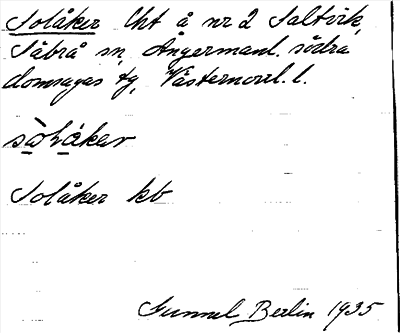 Solåker lht å nr 2 Saltvik,
Säbrå sn, Ångermanl. södra
domsagas tg, Västernorrl. l.
Solåker kb
Gunnel Berlin 1935